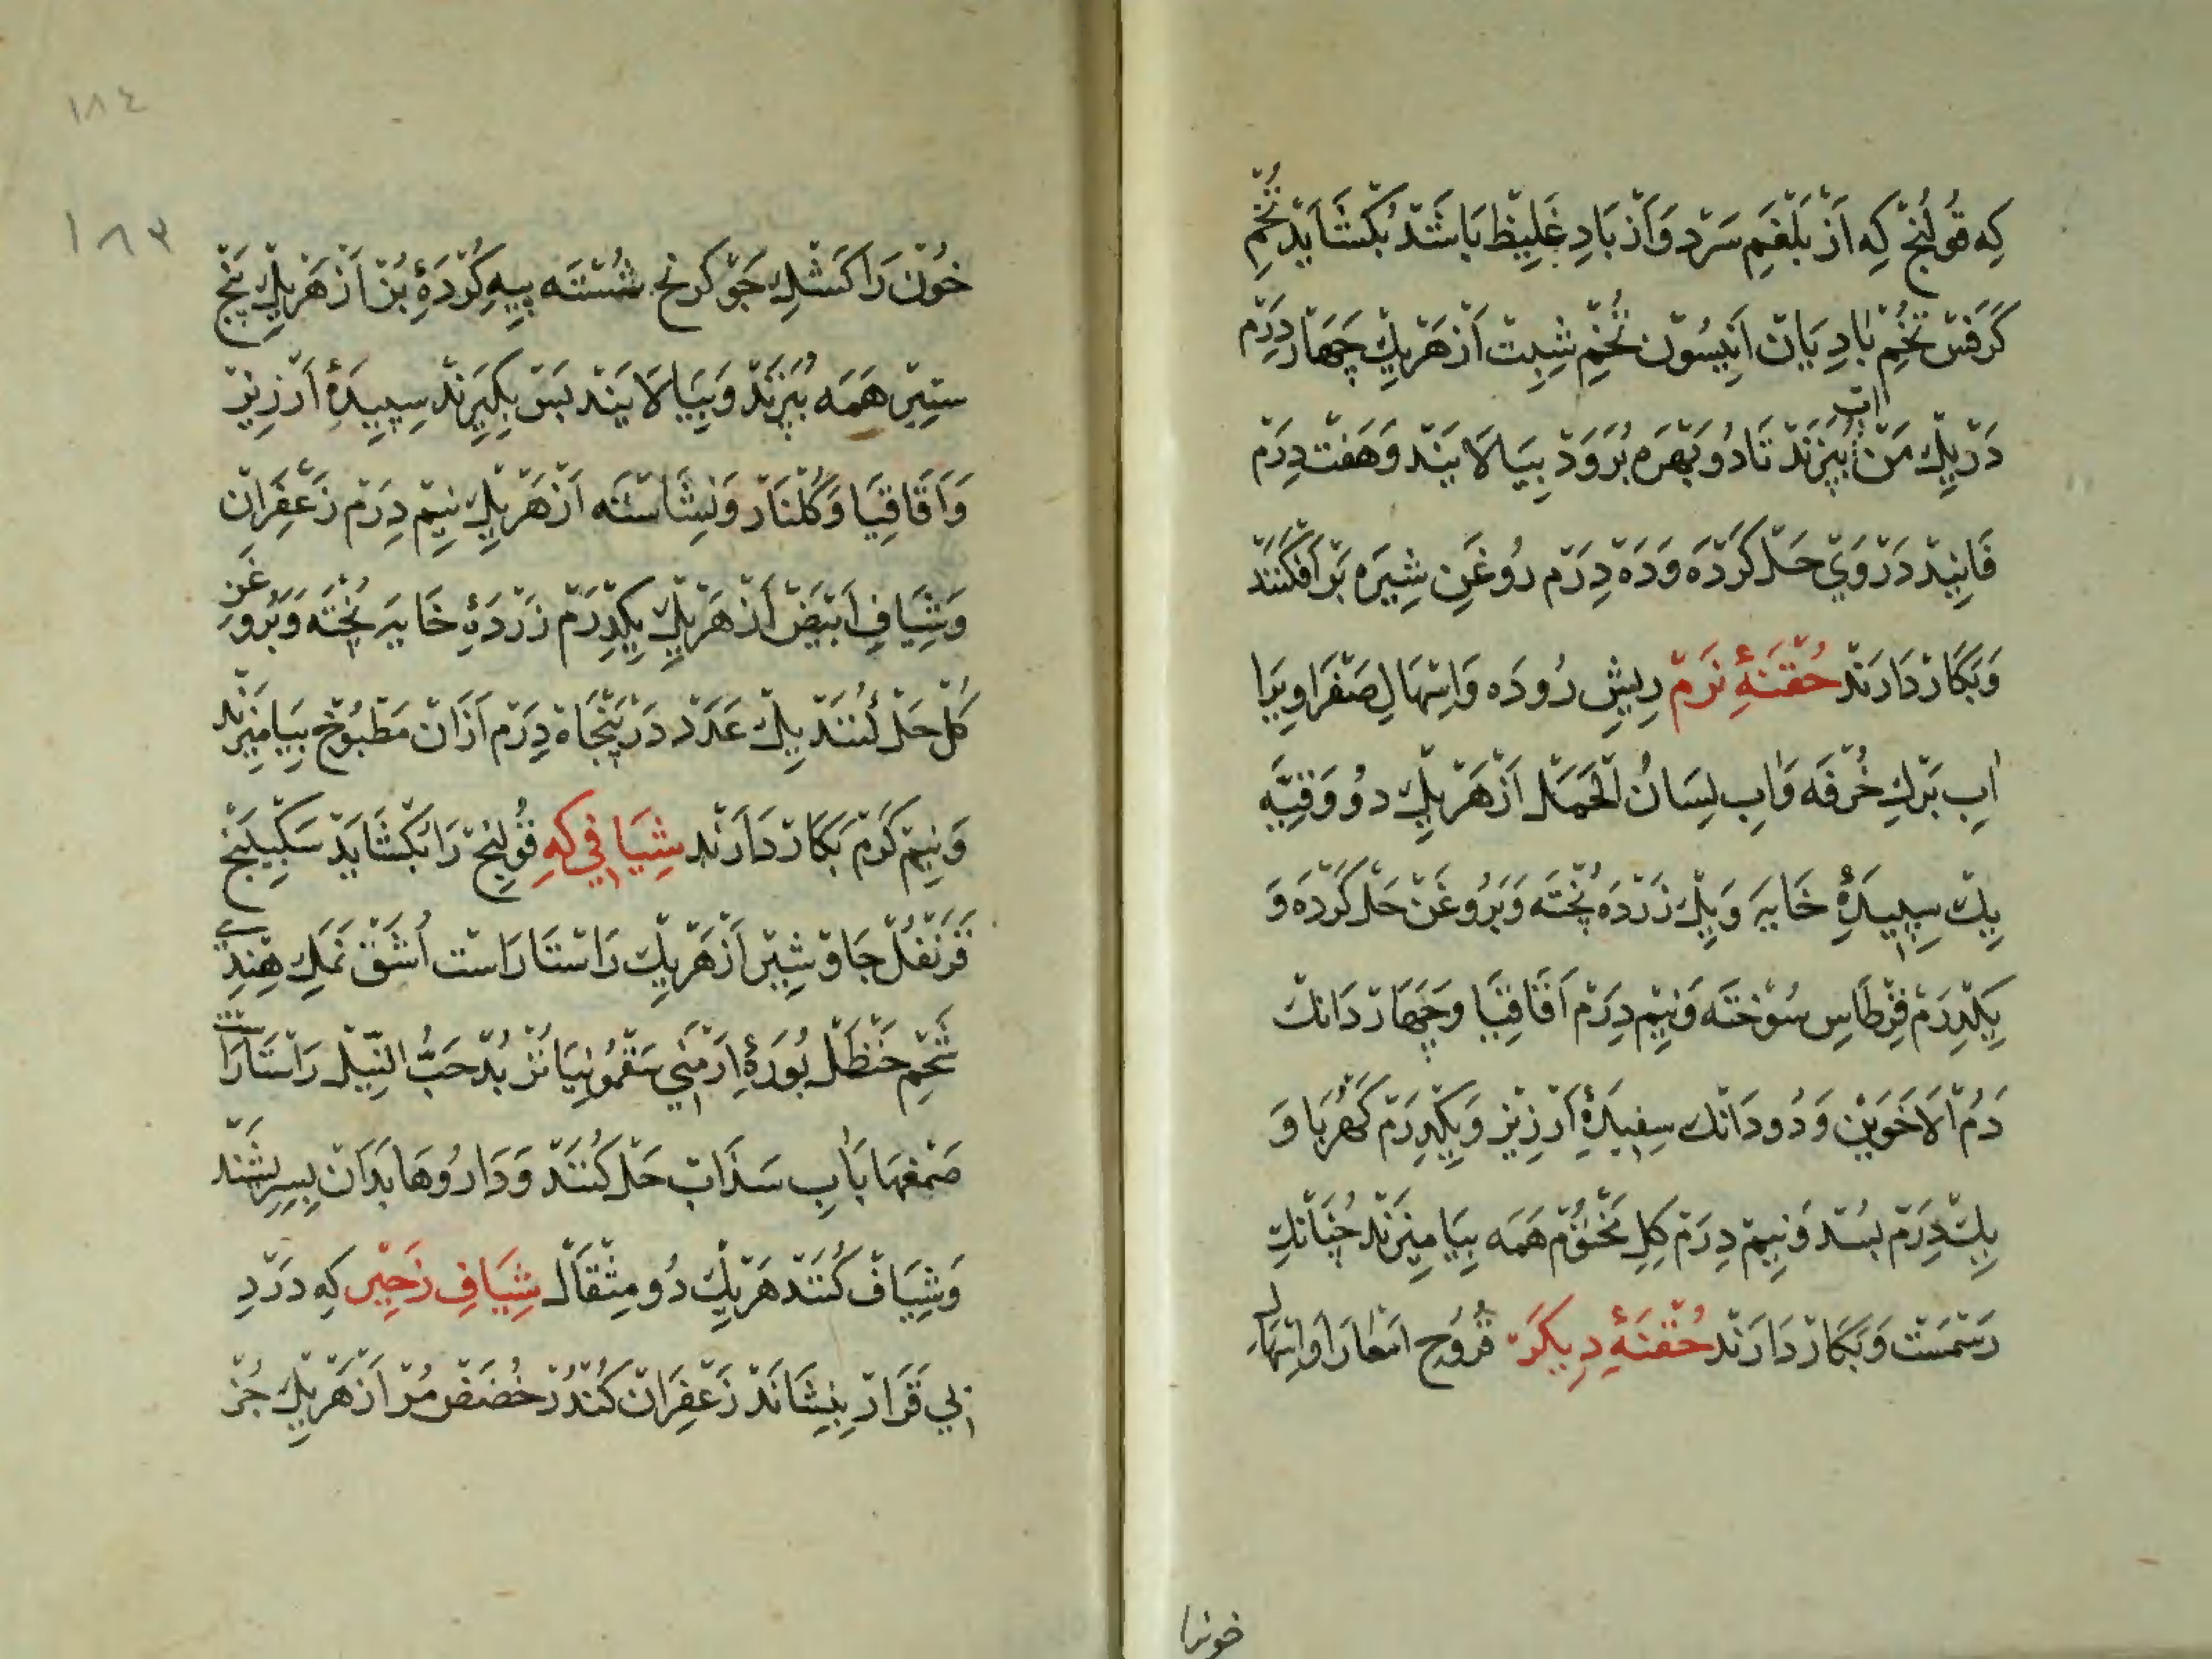 كِه قُولَنْج كِه اَزْ بَلْغَمِ سَرْد وَاَزْ بَادِ غَلِيظ بَاشَدْ بُكْشَايَدْ تُخْمِ
كَرَفْس تُخْمِ بَادِيَانْ اَنِيسُون تُخْمِ شِبِتْ اَزْ هَرْيِكْ چَهَارْ دِرَمْ
دَرْ يِكْ مَنْ اٰبْ بِپَزَنْدْ تَا دُو بَهْرَه بُرَوَدْ بِيَالَايَنْد وَهَفْتْ دِرَمْ
فَانِيْد دَرْوَيْ حَلْ كَرْدَه وَدَهْ دِرَمْ رُوغَنِ شِيرَه بَرْ اَفْكَنَنْد
وَبَكَارْ دَارَنْدْ حُقْنَهِٔ نَرْمْ رِيشِ رُودَه وَاِسْهَالِ صَفْرَاوِيرَا
اٰبِ بَرْكِ خُرْفَه وَاٰبِ لِسَانُ الْحَمَلْ اَزْ هَرْيِكْ دُو وَقِيَّه
يِكْ سِپِيدَهِٔ خَايَه وَيِكْ زَرْدَه پُخْتَه وَبَرُوغَنْ حَلْ كَرْدَه وَ
يِكْدِرَمْ قِرْطَاسِ سُوْخْتَه وَنِيمْ دِرَمْ اَقَاقِيَا وَچَهَارْ دَانْكْ
دَمُ الْاَخَوَيْن وَدُو دَانْك سِفِيدَهِٔ اَرْزِيزْ وَيِكْدِرَمْ كَهْرُبَا وَ
يِكْ دِرَمْ بُسَّد وَنِيمْ دِرَمْ كِلِ مَخْتُومْ هَمَه بِيَامِيزَنْد چُنَانْكِ
رَسْمَسْت وَبَكَارْ دَارَنْد حُقْنَهِٔ دِيكَرْ قُرُوحِ اَمْعَارَا وَاِسْهَالِ
خونرا
١٨٤
١٨٣
خُونْ رَا كَشْكِ جَوْ كرنج شُسْتَه پِيهِ كُرْدَهِٔ بُزْ اَزْ هَرْيِكْ پَنْجْ
سِتِيرْ هَمَه بِپَزَنْدْ وَبِيَالَايَنْد پَسْ بِكِيرَنْد سِپِيدَهِٔ اَرْزِيزْ
وَاَقَاقِيَا وَكُلْنَارْ وَنِشَاسْتَه اَزْ هَرْيِكْ نِيمْ دِرَمْ زَعْفَرَانْ
وَشِيَافِ اَبْيَضْ اَزْ هَرْيِكْ يِكْدِرَمْ زَرْدَهِٔ خَايَه پُخْتَه وَبَرُوغَنِ
كُلْ حَلْ كُنَنْد يِكْ عَدَدْ دَرْ پَنْجَاهْ دِرَمْ اَزْانْ مَطْبُوخْ بِيَامِيزَنْد
وَنِيمْ كَرْمْ بَكَارْ دَارَنْد شِيَافِي كِه قُولِنْجْ رَا بُكْشَايَدْ سَكْبِينَجْ
قَرَنْفُلْ جَاوْشِيرْ اَزْ هَرْيِكْ رَاسْتَارَاست اُشَقْ نَمَكِ هِنْدِي
شَحْمِ حَنْظَلْ بُورَهِٔ اَرْمَنِي سَقْمُونِيَا تُرْبُدْ حَبُّ النِّيلْ رَاسْتَارَاسْت
صَمْغهَا بَاٰبِ سَذَابْ حَلْ كُنَنْدْ وَدَارُوهَا بَدَانْ بِسِرِشَنْد
وَشِيَافْ كُنَنْد هَرْيِكْ دُو مِثْقَالْ شِيَافِ زَحِيرْ كِه دَرْدِ
بِي قَرَارْ بِنِشَانَدْ زَعْفَرَانْ كُنْدُرْ حُضَضْ مُرّ اَزْ هَرْيِكْ جُزْ